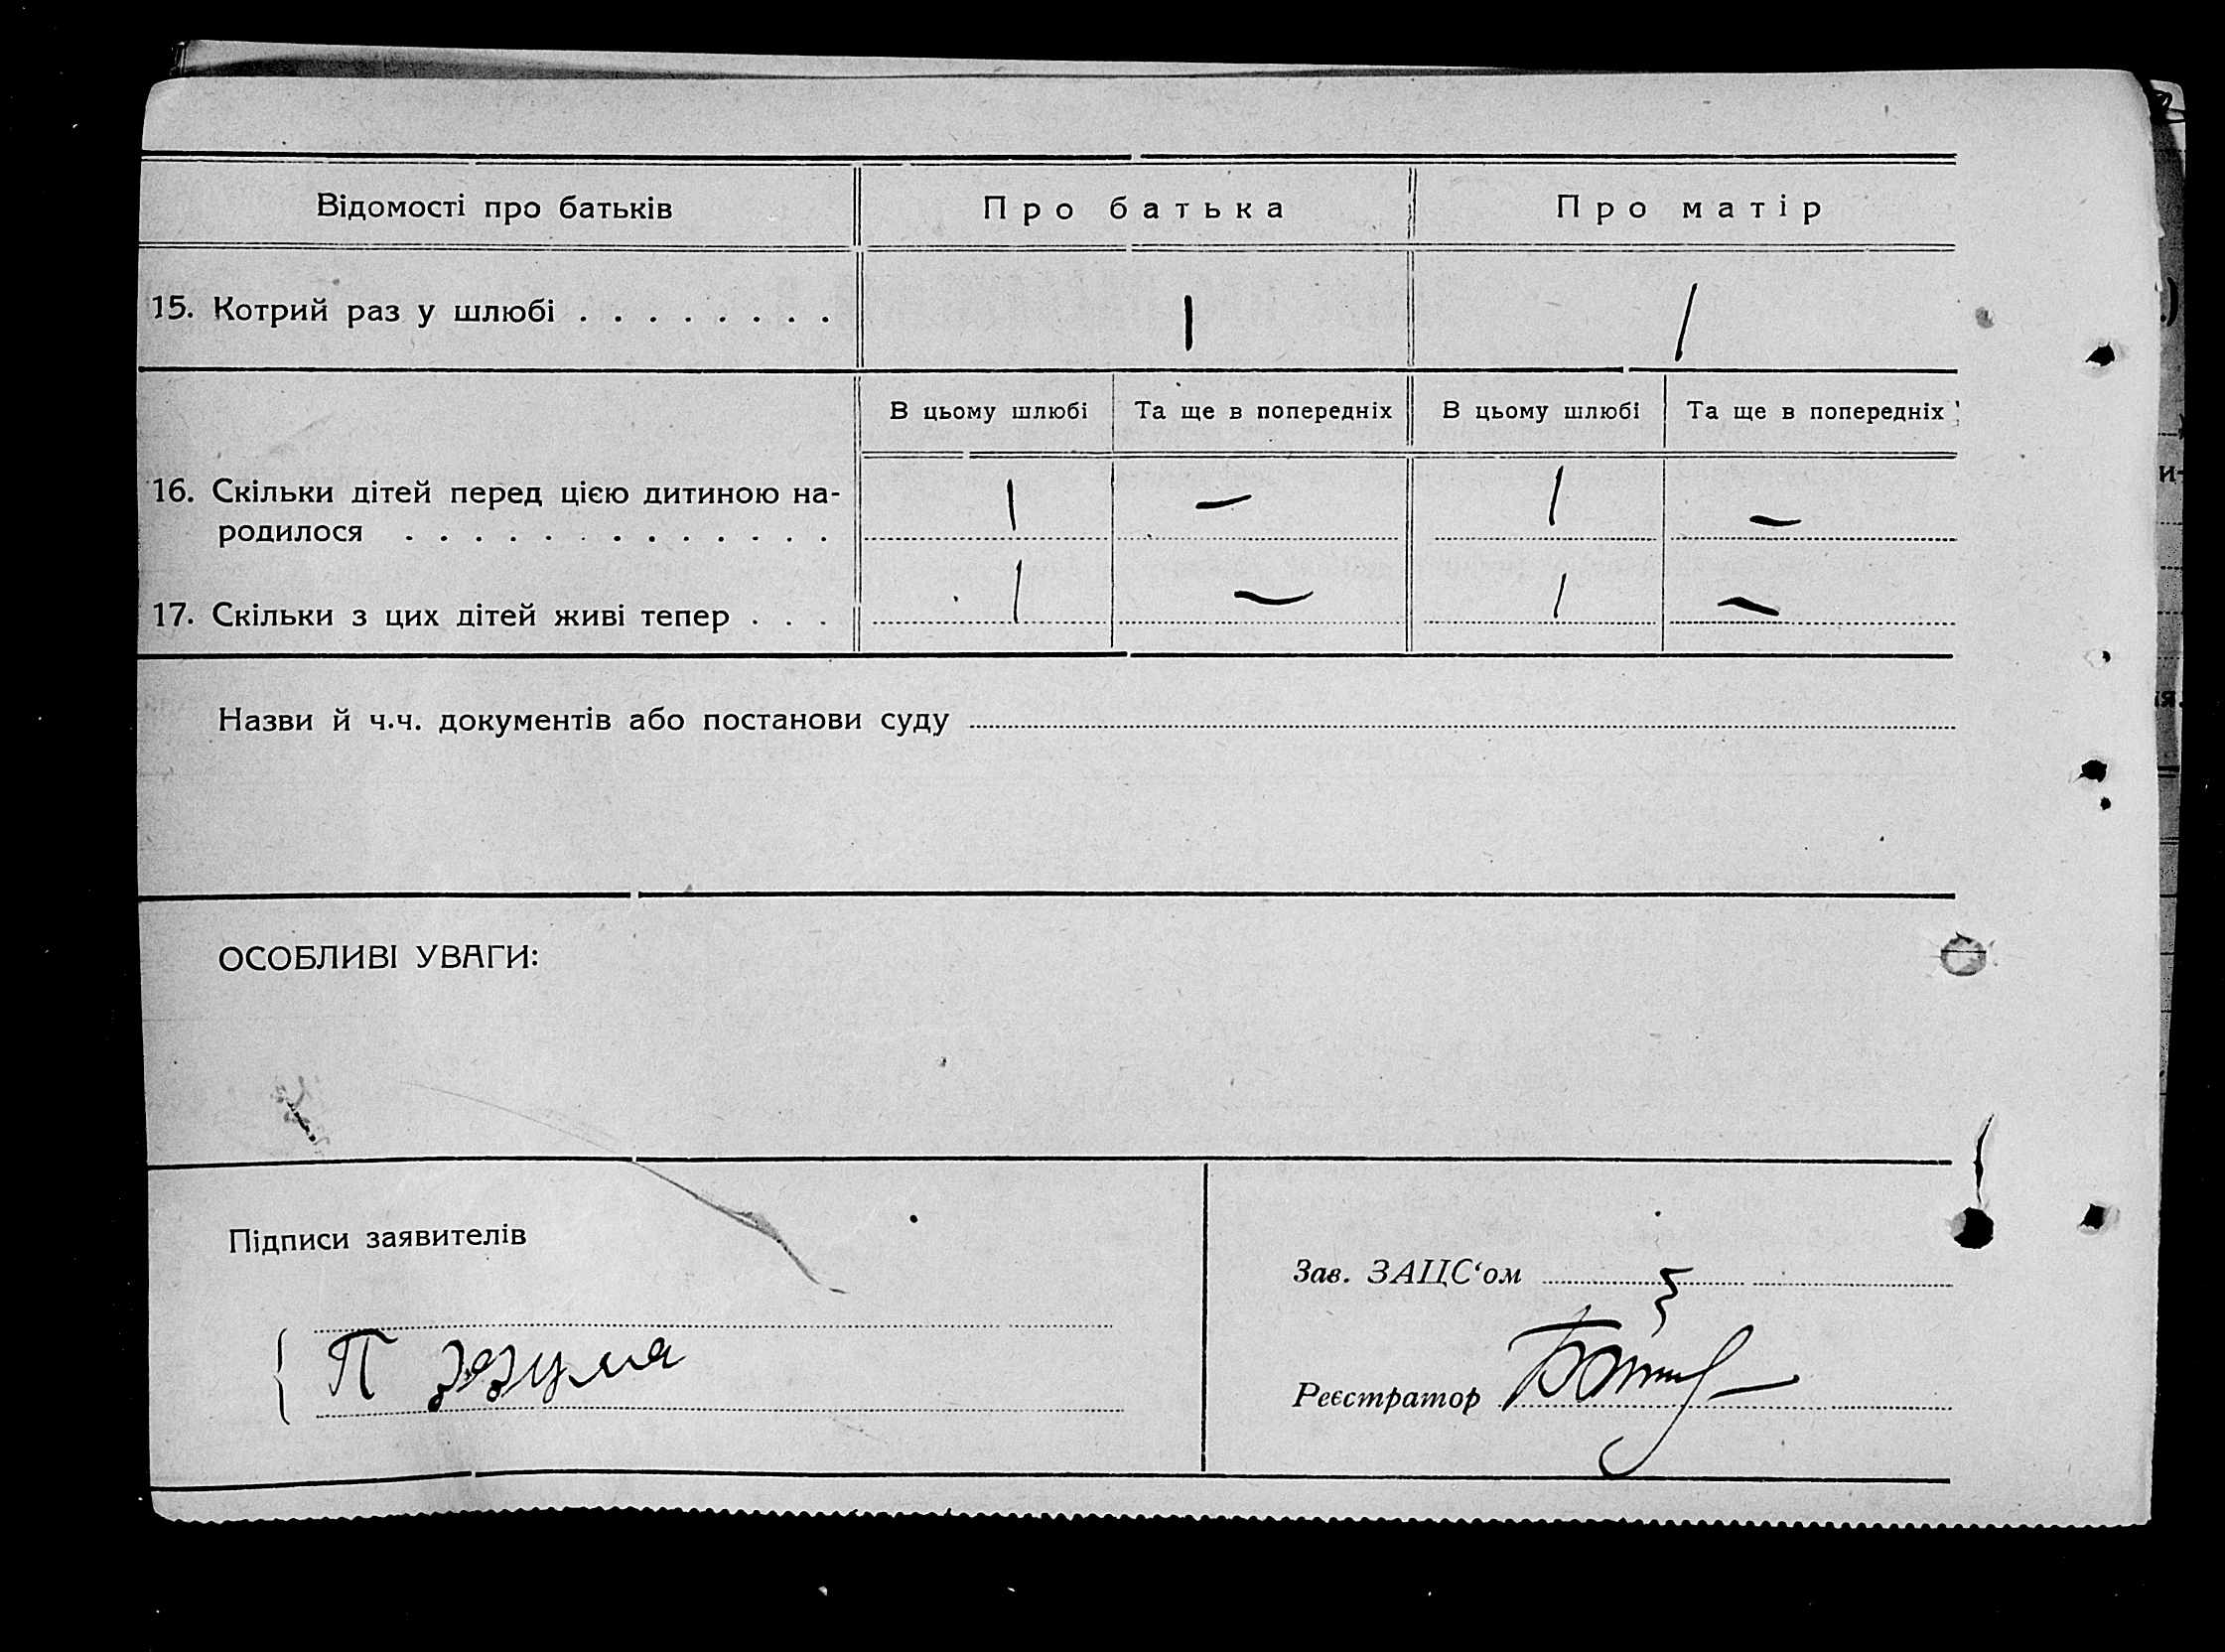 Відомості про батьків Про батька Про матір
15. Котрий раз у шлюбі . . . . . . . . 1 1
В цьому шлюбі Та ще в попередніх В цьому шлюбі Та ще в попередніх
16. Скільки дітей перед цією дитиною на- 1 — 1 —
родилося . . . . . . . . . . . . .
17. Скільки з цих дітей живі тепер . . . 1 — 1 —
Назви й ч.ч. документів або постанови суду
ОСОБЛИВІ УВАГИ:
Підписи заявителів
Зав. ЗАЦС‘ом
П
Реєстратор